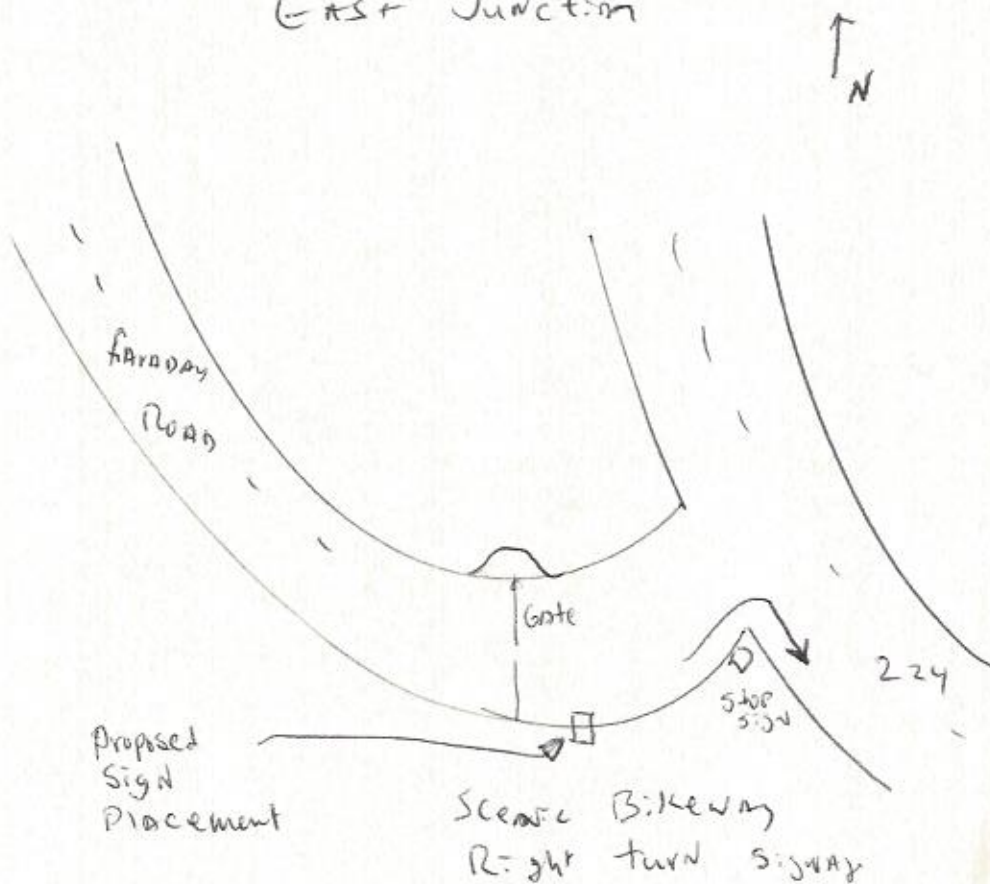 EAST Junction
N
FARADAY
ROAD
Gate
224
Stop
Sign
Proposed
Sign
Placement
Scenic Bikeway
Right turn Signage